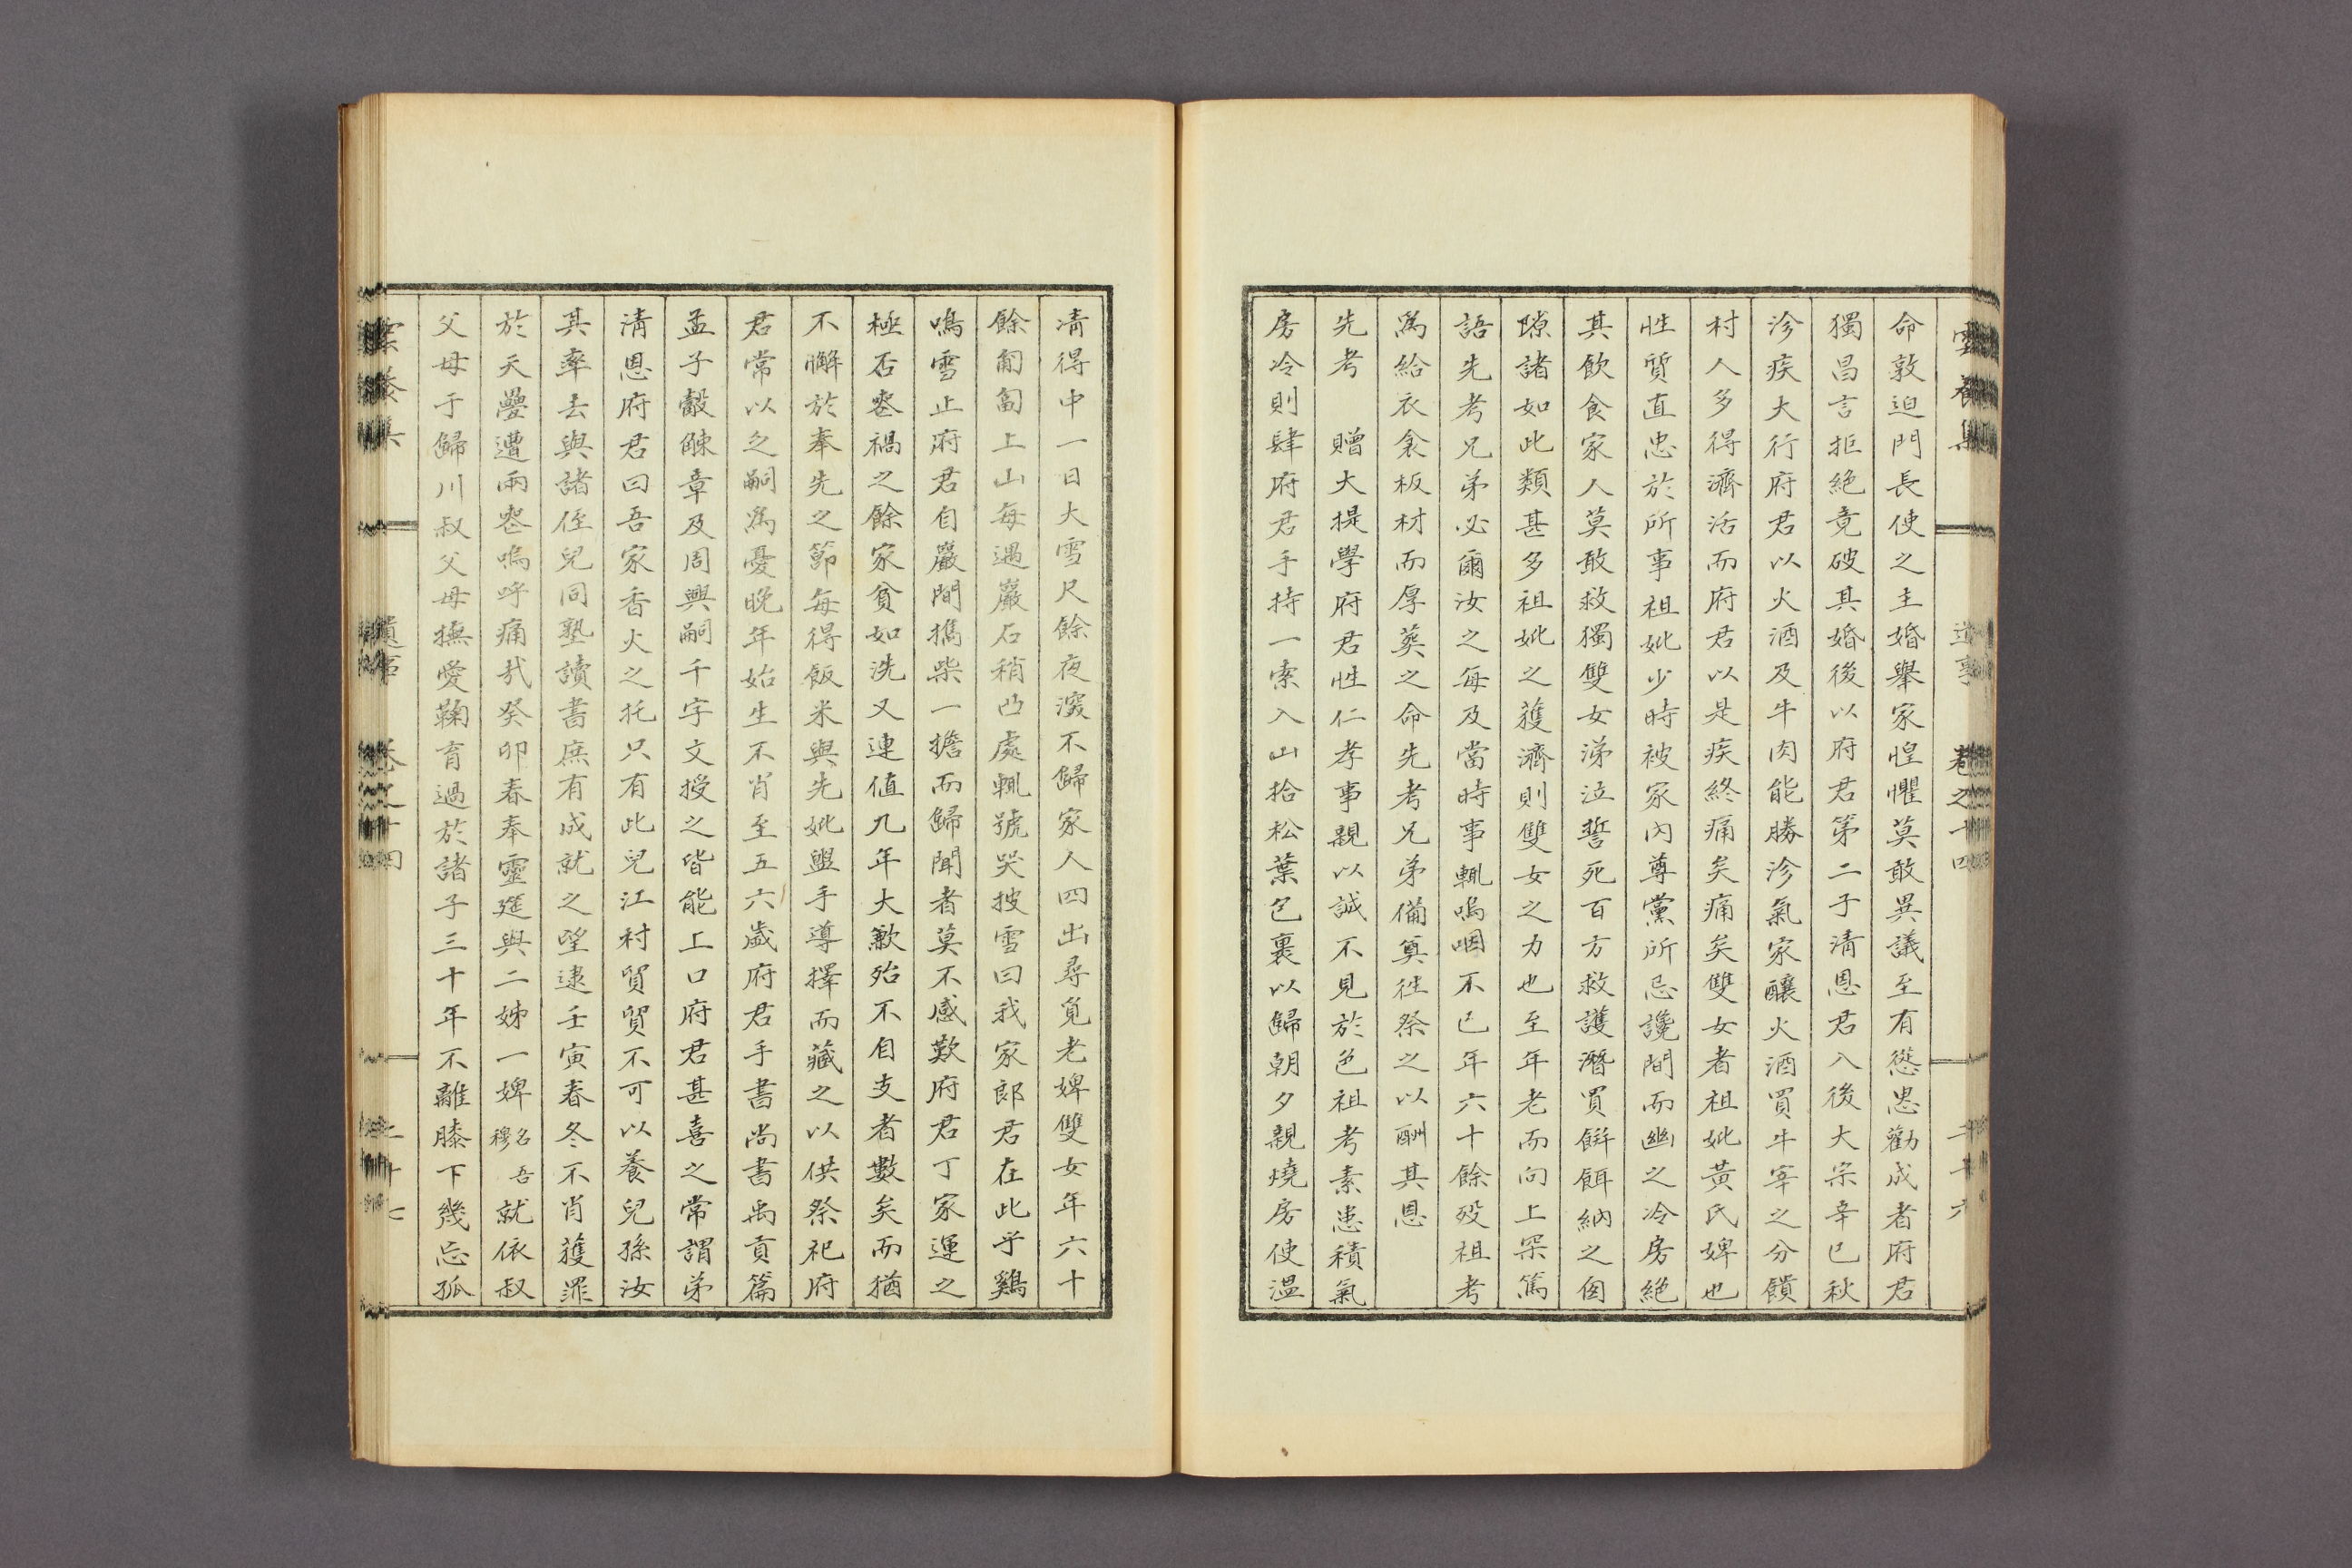 命敦迫門長使之主婚舉家惶懼莫敢異議至有慫恿勸成者府君
獨昌言拒絶竟破其婚後以府君第二子清恩君入後大宗辛巳秋
沴疾大行府君以火酒及牛肉能勝沴氣家釀火酒買牛宰之分饋
村人多得濟活而府君以是疾終痛矣痛矣雙女者祖妣黃氏婢也
性質直忠於所事祖妣少時被家內尊黨所忌讒間而幽之冷房絶
其飮食家人莫敢救獨雙女涕泣誓死百方救護潛買餠餌納之囱
隙諸如此類甚多祖妣之獲濟則雙女之力也至年老而向上罙篤
語先考兄弟必爾汝之每及當時事輒嗚咽不已年六十餘歿祖考
爲給衣衾板材而厚葬之命先考兄弟備奠徃祭之以酬其恩
先考　贈大提學府君性仁孝事親以誠不見於色祖考素患積氣
房冷則肆府君手持一索入山拾松葉包裏以歸朝夕親燒房使温
雲養集
遺事　卷之十四
二十六
凊得中一日大雪尺餘夜深不歸家人四出尋覓老婢雙女年六十
餘匍匐上山每遇巖石稍凸處輒號哭披雪曰我家郎君在此乎鷄
鳴雪止府君自巖間擕柴一擔而歸聞者莫不感歎府君丁家運之
極否喪禍之餘家貧如洗又連値九年大歉殆不自支者數矣而猶
不懈於奉先之節每得飯米與先妣盥手導擇而藏之以供祭祀府
君常以乏嗣爲憂晩年始生不肖至五六歲府君手書尙書禹貢篇
孟子觳觫章及周興嗣千字文授之皆能上口府君甚喜之常謂弟
淸恩府君曰吾家香火之托只有此兒江村貿貿不可以養兒孫汝
其率去與諸侄兒同塾讀書庶有成就之望逮壬寅春冬不肖獲罪
於天疊遭兩喪嗚呼痛哉癸卯春奉靈筵與二姊一婢名吾穆就依叔
父母于歸川叔父母撫愛鞠育過於諸子三十年不離膝下幾忘孤
雲養集
遺事　卷之十四
二十七